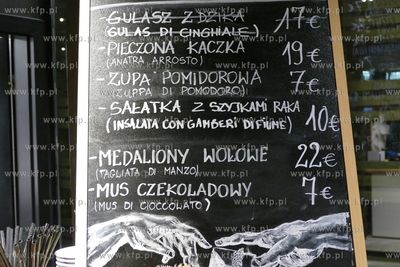 - GULASZ Z DZIKA 17€
(GULAS DI CINGHIALE)
- PIECZONA KACZKA 19€
(ANATRA ARROSTO)
- ZUPA POMIDOROWA 7€
(ZUPPA DI POMODORO)
- SAŁATKA Z SZYJKAMI RAKA 10€
(INSALATA CON GAMBERI DI FIUME)
- MEDALIONY WOŁOWE 22€
(TAGLIATA DI MANZO)
- MUS CZEKOLADOWY 7€
(MUS DI CIOCCOLATO)
www.kfp.pl